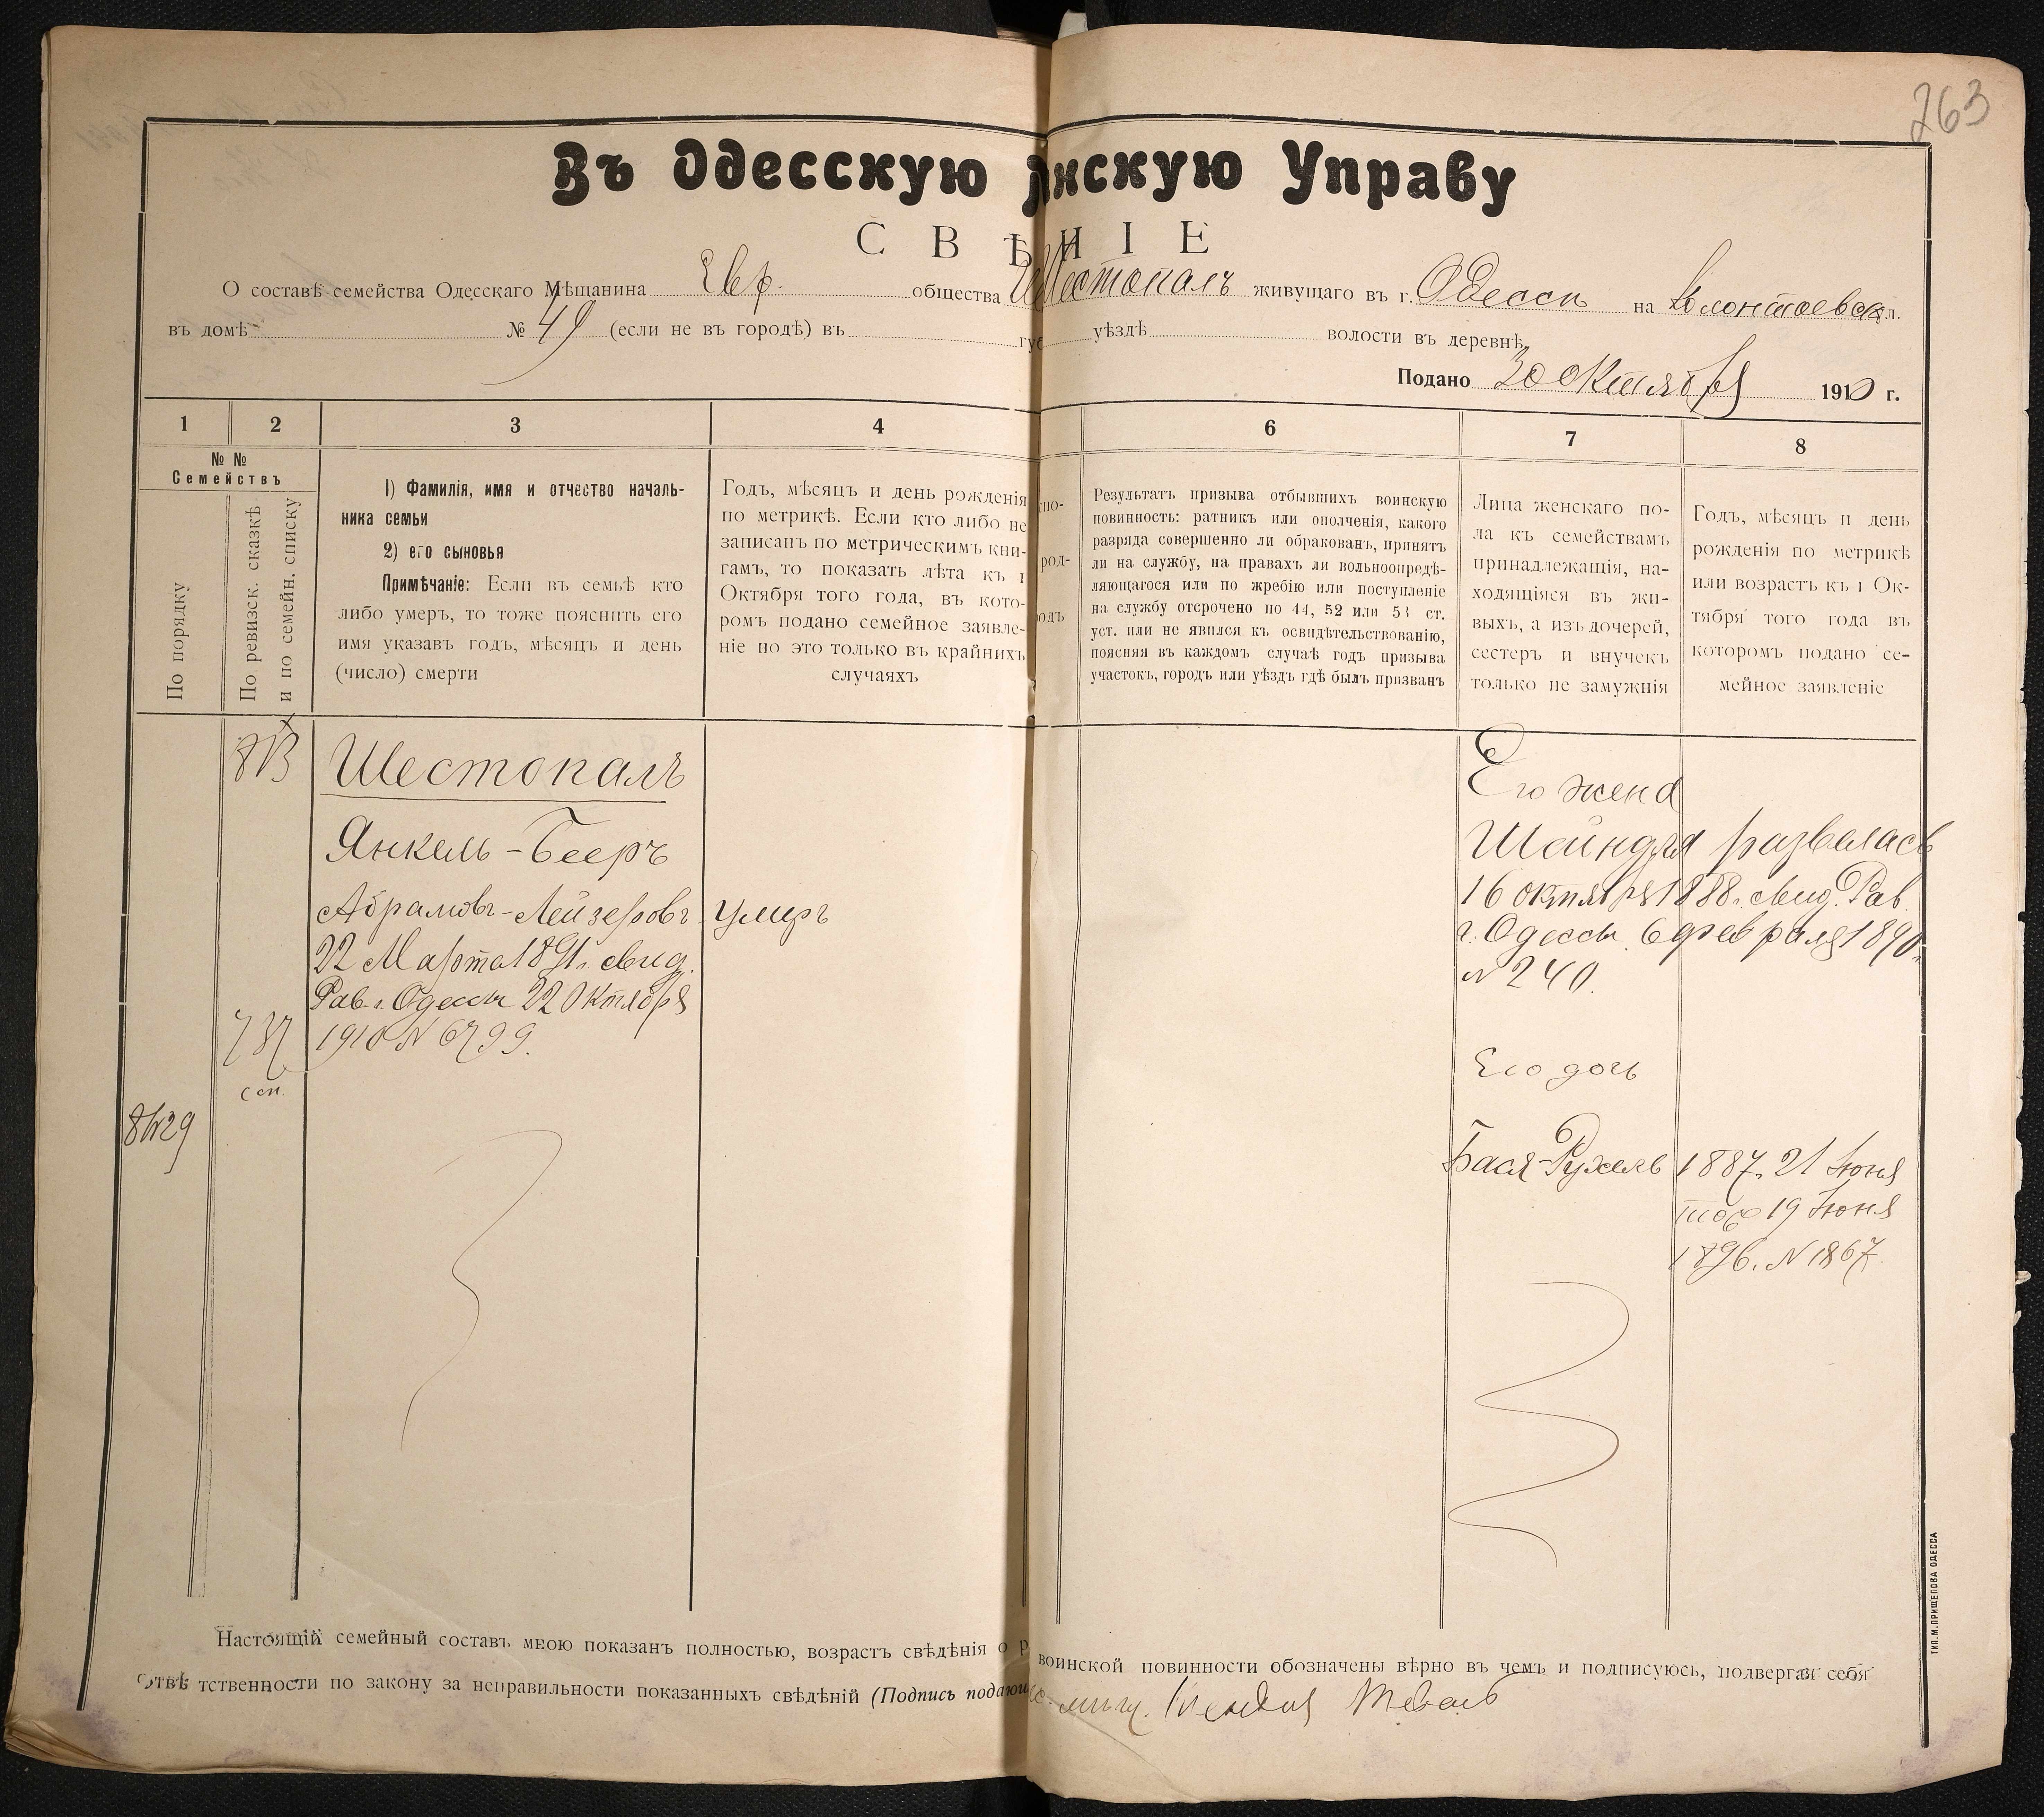 263
Въ Одесскую нскую Управу
С В Ѣ Н І Е
О составѣ семейства Одесскаго Мѣщанина Евр. общества Шестопалъ живущаго въ г. Одессѣ на ул.
въ домѣ № 49 (если не въ городѣ) въ гу уѣздѣ волости въ деревнѣ
Подано 30 октября 1910 г.
1 2 3 4 6 7 8
№ №
Семействъ
По порядку
По ревизск. сказкѣ
и по семейн. списку
1) Фамилія, имя и отчество началь-
ника семьи
2) его сыновья
Примѣчаніе: Если въ семьѣ кто
либо умеръ, то тоже пояснить его
имя указавъ годъ, мѣсяцъ и день
(число) смерти
Годъ, мѣсяцъ и день рожденія
по метрикѣ. Если кто либо не
записанъ по метрическимъ кни-
гамъ, то показать лѣта къ 1
Октября того года, въ кото-
ромъ подано семейное заявле-
ніе но это только въ крайнихъ
случаяхъ
спо-
род-
одъ
Результатъ призыва отбывшихъ воинскую
повинность: ратникъ или ополченія, какого
разряда совершенно ли обракованъ, принятъ
ли на службу, на правахъ ли вольноопредѣ-
ляющагося или по жребію или поступленіе
на службу отсрочено по 44, 52 или 53 ст.
уст. или не явился къ освидѣтельствованію,
поясняя въ каждомъ случаѣ годъ призыва
участокъ, городъ или уѣздъ гдѣ былъ призванъ
Лица женскаго по-
ла къ семействамъ
принадлежащія, на-
ходящіяся въ жи-
выхъ, а изъ дочерей,
сестеръ и внучекъ
только не замужнія
Годъ, мѣсяцъ и день
рожденія по метрикѣ
или возрастъ къ 1 Ок-
тября того года въ
которомъ подано се-
мейное заявленіе
813
Шестопалъ
Янкель-Бееръ
Абрамовъ-Лейзеровъ умеръ
22 Марта 1891г. свид.
Рав. г. Одессы 22 Октября
1910 N 6799.
737
сп.
8429
Его жена
Шейндля развелась
16 октября 1888г. свид. Рав.
г. Одессы 6 февраля 1890г.
N 240.
Его дочь
Бася-Рухель 1887г. 21 Іюня
19 Іюня
1896. N 1867.
Настоящій семейный составъ мною показанъ полностью, возрастъ свѣдѣнія о воинской повинности обозначены вѣрно въ чемъ и подписуюсь, подвергая себя
отвѣтственности по закону за неправильности показанныхъ свѣдѣній (Подпись подающ
ТИП. М. ПРИЩЕПОВА ОДЕССА